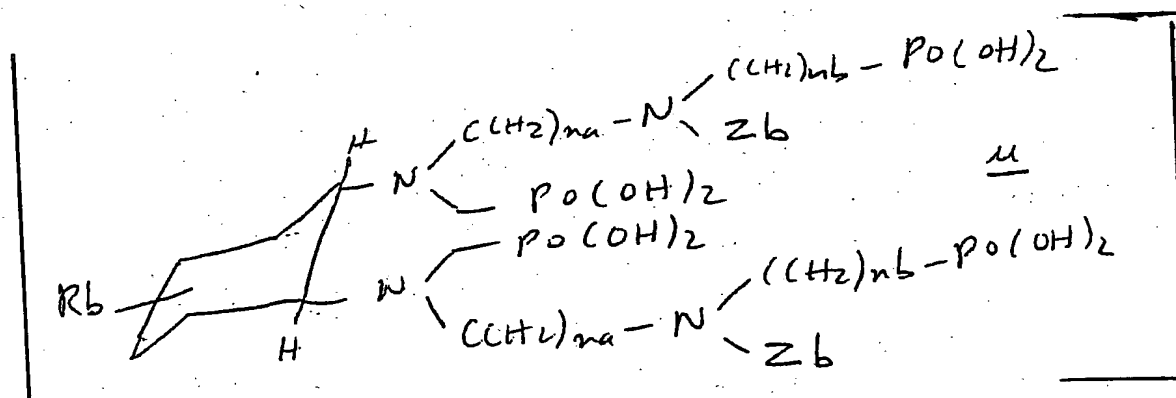 ((CH2)nb - PO(OH)2
H C(H2)na - N Zb
N
PO(OH)2
PO(OH)2
Rb N ((H2)nb - PO(OH)2
H C(CH2)na - N
Zb